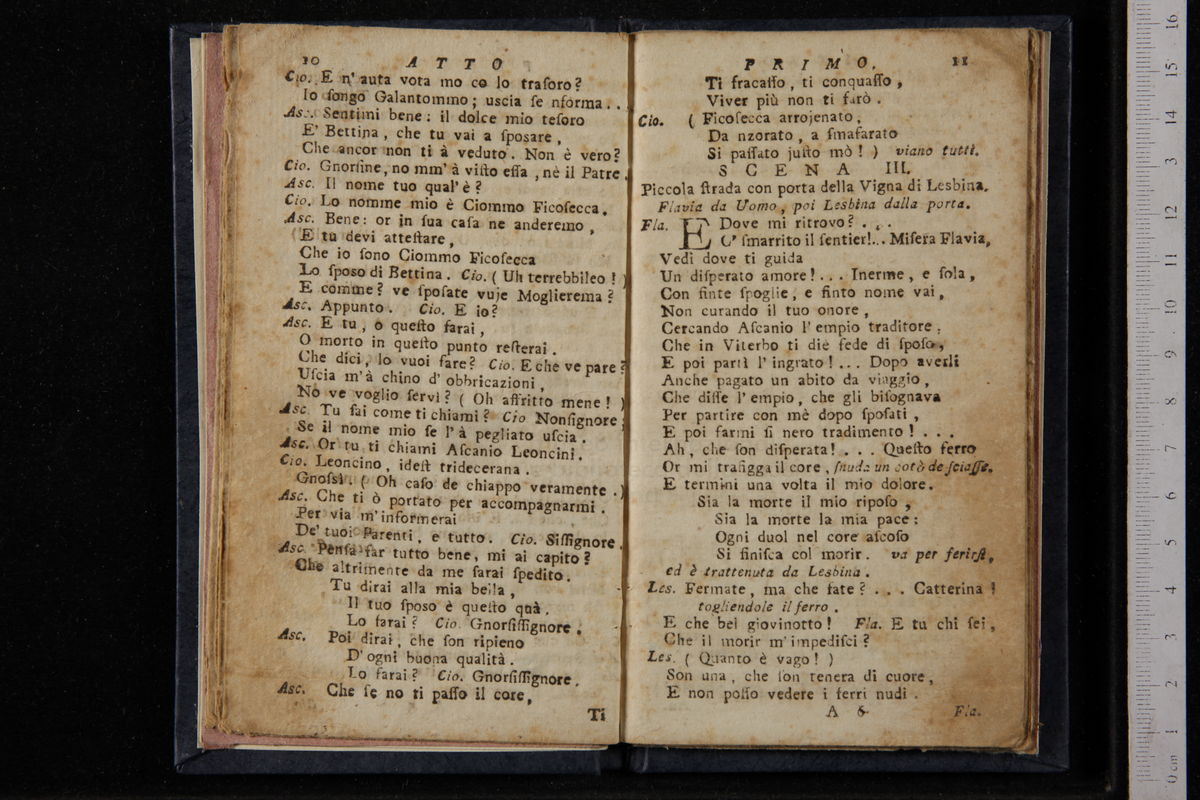 10 ATTO
Cio. E n' auta vota mo co lo traſoro?
Io ſongo Galantommo; uscia ſe nforma. .
Asc. Sentimi bene: il dolce mio teſoro
E' Bettina, che tu vai a ſposare,
Che ancor non ti à veduto. Non è vero?
Cio. Gnorſine, no mm' à viſto eſſa, nè il Patre.
Asc. Il nome tuo qual' è?
Cio. Lo nomme mio è Ciommo Ficoſecca.
Asc. Bene: or in ſua caſa ne anderemo,
E tu devi atteſtare,
Che io ſono Ciommo Ficoſecca
Lo ſposo di Bettina. Cio. ( Uh terrebbileo! )
E comme? ve ſpoſate vuje Moglierema?
Asc. Appunto. Cio. E io?
Asc. E tu, o queſto farai,
O morto in queſto punto reſterai.
Che dici, lo vuoi fare? Cio. E che ve pare?
Uſcia m'à chino d' obbricazioni,
No ve voglio ſervì? ( Oh affritto mene! )
Asc. Tu ſai come ti chiami? Cio Nonſignore;
Se il nome mio ſe l' à pegliato uſcia.
Asc. Or tu ti chiami Aſcanio Leoncini.
Cio. Leoncino, ideſt tridecerana.
Gnorsì. ( Oh caſo de chiappo veramente. )
Asc. Che ti ò portato per accompagnarmi.
Per via m'informerai
De' tuoi Parenti, e tutto. Cio. Siſſignore.
Asc. Penſa far tutto bene, mi ai capito?
Che altrimente da me ſarai ſpedito.
Tu dirai alla mia bella,
Il tuo ſposo è queſto quà.
Lo farai? Cio. Gnorſiſſignore.
Asc. Poi dirai, che ſon ripieno
D'ogni buona qualità.
Lo farai? Cio. Gnorſiſſignore.
Asc. Che ſe no ti paſſo il core,
Ti
PRIMO. 11
Ti fracaſſo, ti conquaſſo,
Viver più non ti farò.
Cio. ( Ficoſecca arrojenato,
Da nzorato, a ſmaſarato
Si paſſato juſto mò! ) viano tutti.
SCENA III.
Piccola ſtrada con porta della Vigna di Lesbina.
Flavia da Uomo, poi Lesbina dalla porta.
Fla. E Dove mi ritrovo? . . .
O' ſmarrito il ſentier!.. Miſera Flavia,
Vedi dove ti guida
Un diſperato amore! . . . Inerme, e ſola,
Con finte ſpoglie, e finto nome vai,
Non curando il tuo onore,
Cercando Aſcanio l' empio traditore;
Che in Viterbo ti diè fede di ſpoſo,
E poi partì l' ingrato! . . . Dopo averli
Anche pagato un abito da viaggio,
Che diſſe l' empio, che gli biſognava
Per partire con mè dopo ſpoſati,
E poi farmi ſi nero tradimento! . . .
Ah, che ſon diſperata! . . . Queſto ferro
Or mi trafigga il core, ſnuda un cotò de ſciaſſe.
E termini una volta il mio dolore.
Sia la morte il mio ripoſo,
Sia la morte la mia pace:
Ogni duol nel core aſcoſo
Si finiſca col morir. va per ferirſi,
ed è trattenuta da Lesbina.
Les. Fermate, ma che fate? . . . Catterina!
togliendole il ferro.
E che bel giovinotto! Fla. E tu chi ſei,
Che il morir m'impediſci?
Les. ( Quanto è vago! )
Son una, che ſon tenera di cuore,
E non poſſo vedere i ferri nudi.
A 6 Fla.
16
15
14
13
12
11
10
9
8
7
6
5
4
3
2
1
0 cm